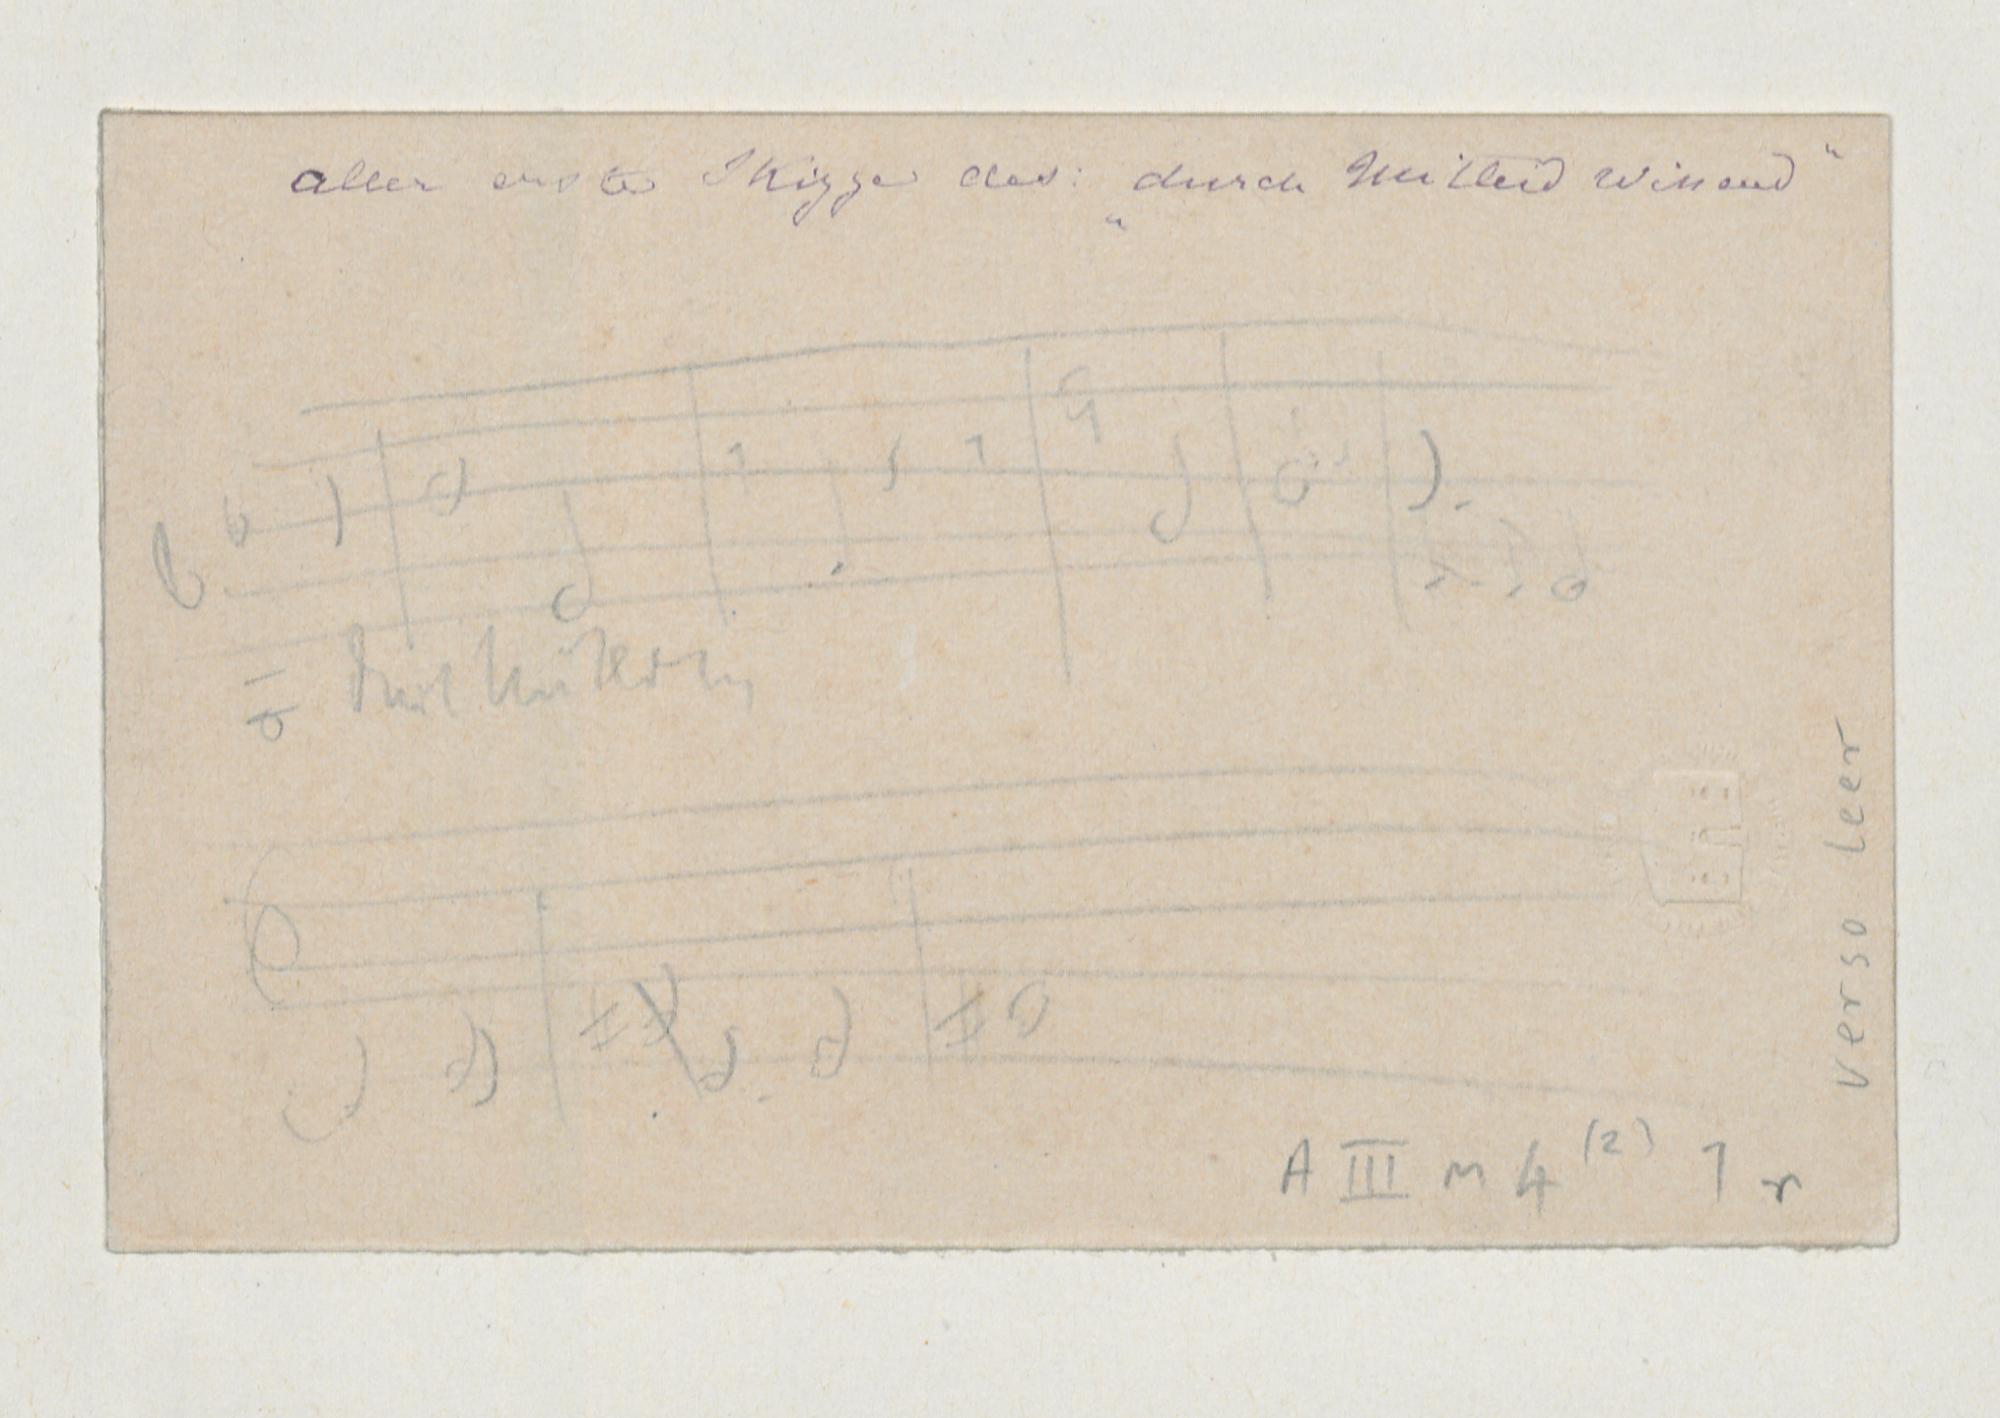 aller erste Skizze des: „durch Mitleid wissend“
Durch Mitleid
verso leer
A III m 4 (2) 1 r